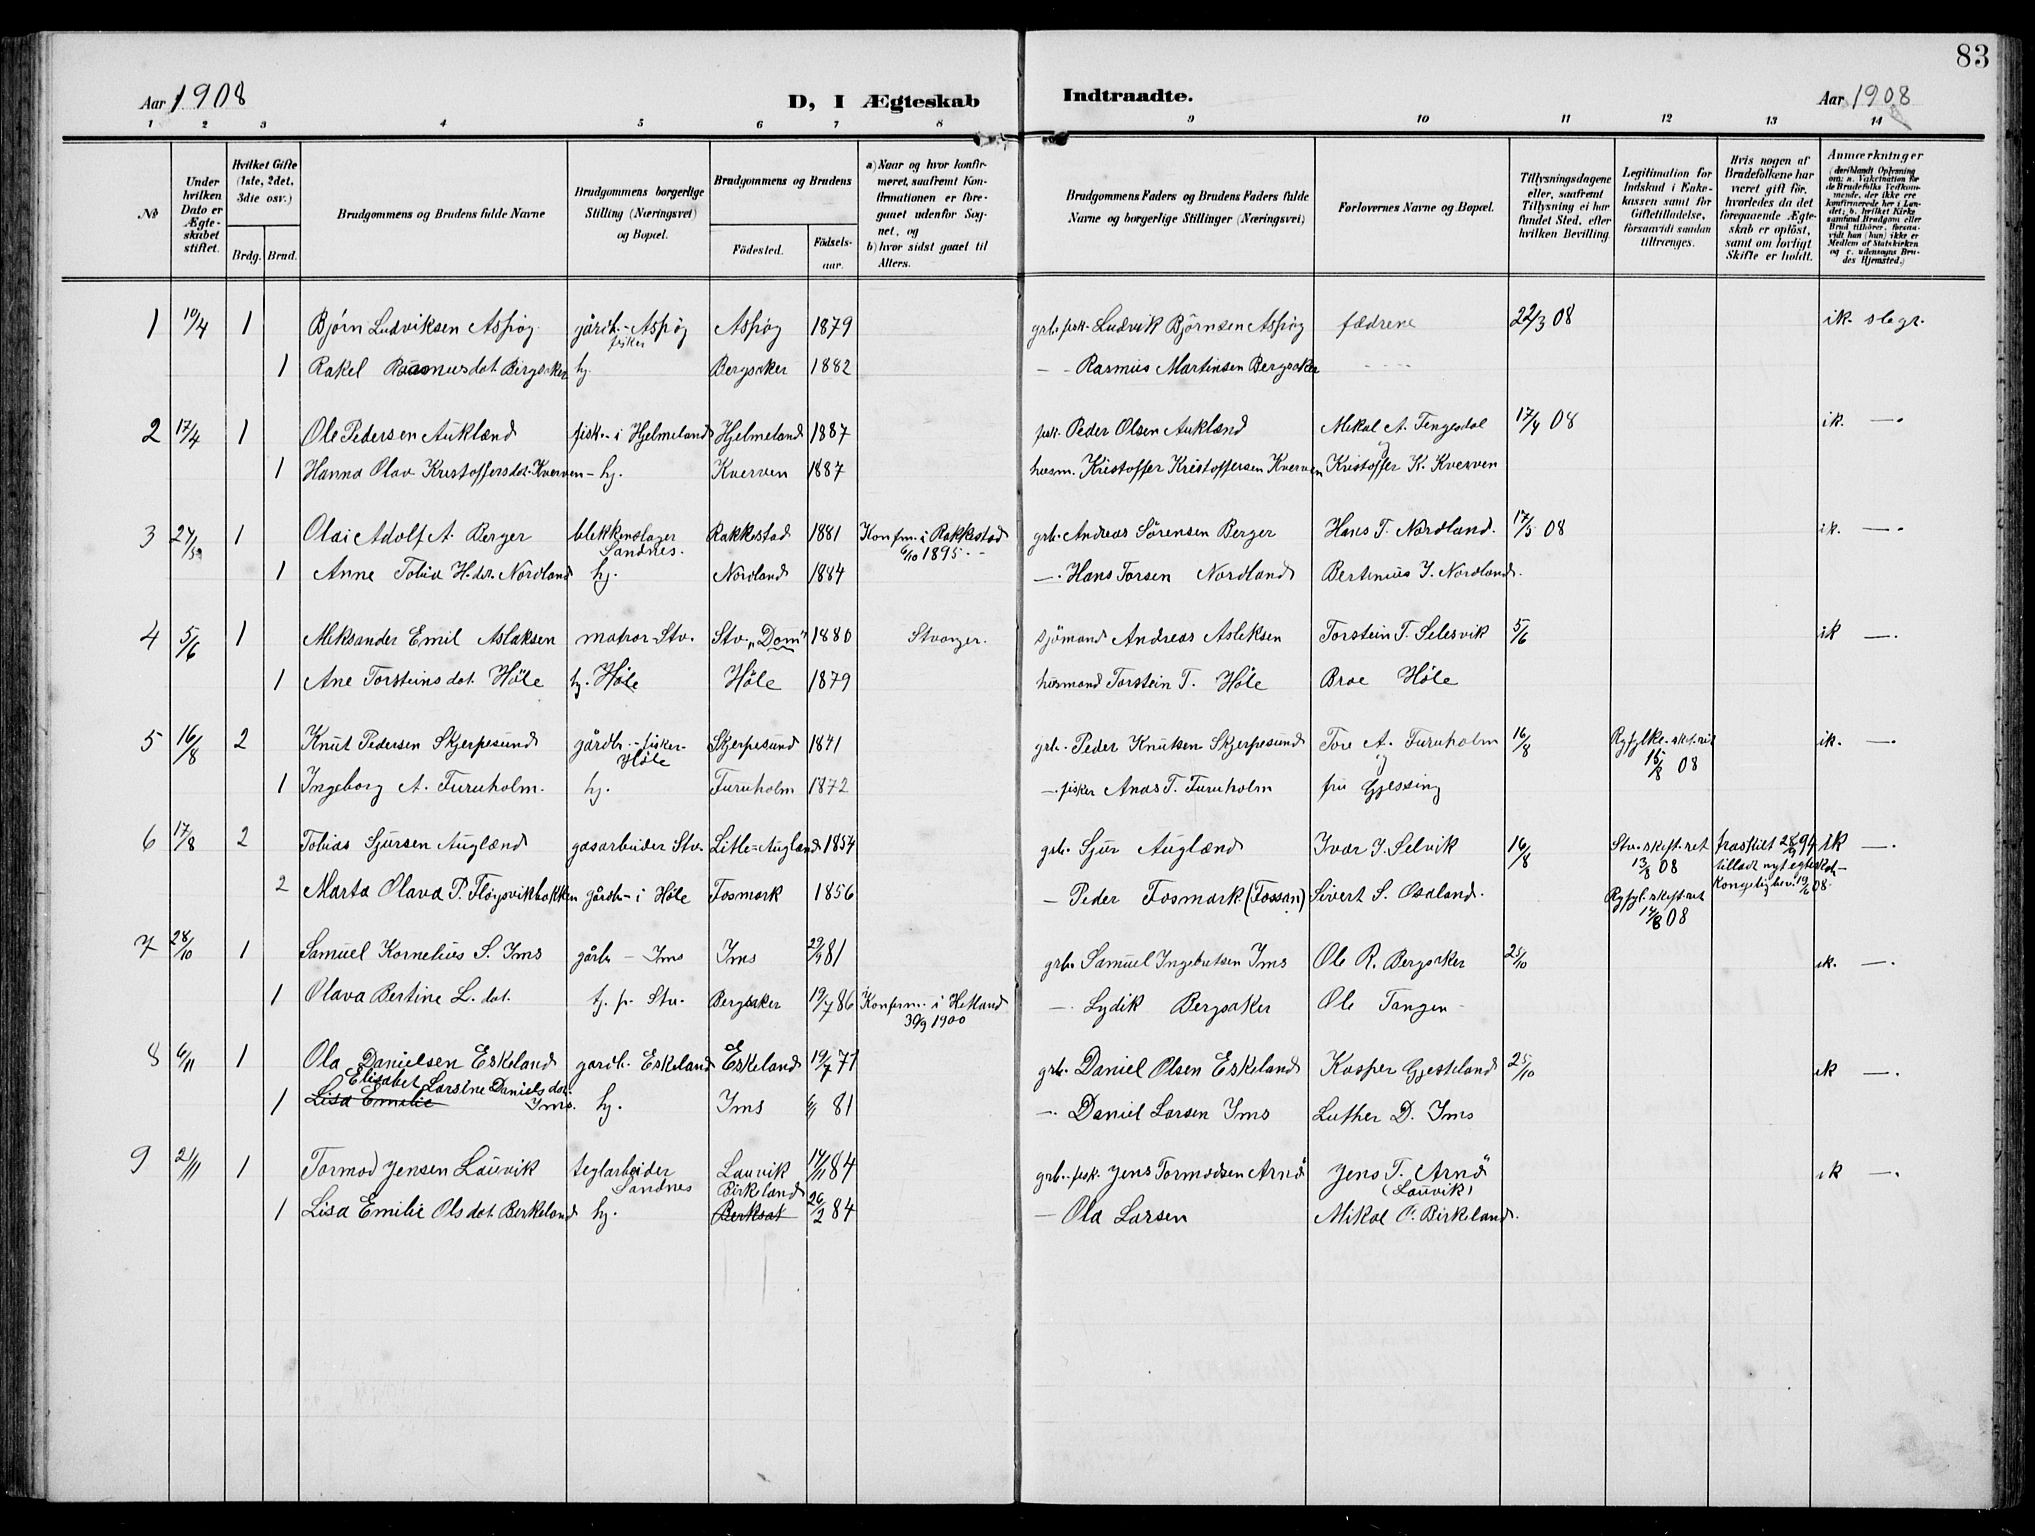 83
Aar 1908 D, I Ægteskab Indtraadte. Aar 1908
1 2 3 4 5 6 7 8 9 10 11 12 13 14
№
Under hvilken Dato er Ægteskabet stiftet.
Hvilket Gifte (1ste, 2det, 3die osv.)
Brdg. Brud.
Brudgommens og Brudens fulde Navne
Brudgommens borgerlige Stilling (Næringsvei) og Bopæl.
Brudgommens og Brudens
Födested. Födselsaar.
a) Naar og hvor konfirmeret, saafremt Konfirmationen er foregaaet udenför Sognet, og
b) hvor sidst gaaet til Alters.
Brudgommens Faders og Brudens Faders fulde Navne og borgerlige Stillinger (Næringsvei)
Forlovernes Navne og Bopæl.
Tillysningsdagene eller, saafremt Tillysning ei har fundet Sted, efter hvilken Bevilling
Legitimation for Indskud i Enkekassen samt for Giftetilladelse, forsaavidt saadan tiltrænges.
Hvis nogen af Brudefolkene har været gift för, hvorledes da det foregaaende Ægteskab er oplöst, samt om lovligt Skifte er holdt.
Anmærkninger (deriblandt Oplysning om: a. Vakcination for de Brudefolks Vedkommende, der ikke ere konfirmerede her i Landet; b. hvilket Kirkesamfund Brudgom eller Brud tilhörer, forsaavidt han (hun) ikke er Medlem af Statskirken og c. udensogns Brudes Hjemsted.)
1 10/4 1 Bjørn Ludviksen Aspøg gårdb.- Aspøg fisker Aspøg 1879 grb. fisk. Ludvik Bjørnsen Aspøg fædrene 22/3 08 ik. slegt.
1 Rakel Rasmusdot Bergsaker hj. Bergsaker 1882 - - Rasmus Martinsen Bergsaker - - - -
2 17/4 1 Ole Pedersen Aukland fisk.- i Hjelmeland Hjelmeland 1887 fisk. Peder Olsen Aukland Mikal A. Tengesdal 17/4 08 ik. —
1 Hanna Olav Kristoffersdot. Kverven - hj. Kverven 1887 husm. Kristoffer Kristoffersen Kverven Kristoffer K. Kverven
3 27/5 1 Olai Adolf A. Berger blekkenslager Sandnes. Rakkestad 1881 Konfm. i Rakkestad 6/10 1895. grb. Andreas Sörensen Berger Hans T. Nordland. 17/5 08 ik. —
1 Anne Tobia H.dot. Nordland hj. Nordland 1884 —. Hans Torsen Nordland Bertinius J. Nordland.
4 5/6 1 Aleksander Emil Aslaksen matros - Stv. Stv. "Dom" 1880 Stvanger. sjömand Andreas Asleksen Torstein T. Selesvik 5/6 ik —.
1 Ane Torsteinsdot. Höle hj. Höle Höle 1879 husmand Torstein T. Höle Brae Höle
5 16/8 2 Knut Pedersen Skjerpesund gårdbr.- fisker- Höle Skjerpesund 1841 grb. Peder Knutsen Skjerpesund Tore A. Furuholm 16/8 Ryfylke skf.ret 15/8 08 ik. —.
1 Ingeborg A. Furuholm. hj. Furuholm 1872 —. fisker Anas T. Furuholm fru Gjessing
6 17/8 2 Tobias Sjursen Auglænd gasarbeider Stv. Litle-Augland 1854 grb. Sjur Auglænd Ivar J. Selvik 16/8 Stv. skift.ret 13/8 08 fraskilt 28/9 94 ik —.
tilladt nyt egteskab- Kongelig bev. 19/6 08.
2 Marta Olava P. Fløysvikbakken gårdb- i Höle Fosmark 1856 — Peder Fosmark (Fossan) Sivert S. Osaland. Ryfyl. skift.ret 14/8 08
7 28/10 1 Samuel Kornelius S. Ims gårb - Ims Ims 29/9 81 grb. Samuel Ingebretsen Ims Ole R. Bergsaker 25/10 ik. —.
1 Olava Bertine L. dot. tj. p. Stv. Bergsaker 19/7 86 Konfirm. i Hetland 30/9 1900 —. Lydik Bergsaker Ole Tangen -
8 6/11 1 Ola Danielsen Eskeland gardb. Eskeland Eskeland 19/7 77 grb. Daniel Olsen Eskeland Kasper Gjesteland 25/10 ik —.
Elisabet Larsine Danielsdot.
1 Lisa Emilie Ims. hj. Ims 81 —. Daniel Larsen Ims Luther D. Ims
9 21/11 1 Tormod Jensen Lauvik teglarbeider Sandnes Lauvik 17/11 84 grb. fisk. Jens Tormodsen Arnö Jens T. Arnö (Lauvik) ik —.
Birkeland
1 Lisa Emilie Olsdot. Berkeland hj. Berksat 26/2 84 — Ola Larsen Mikal O. Birkeland.